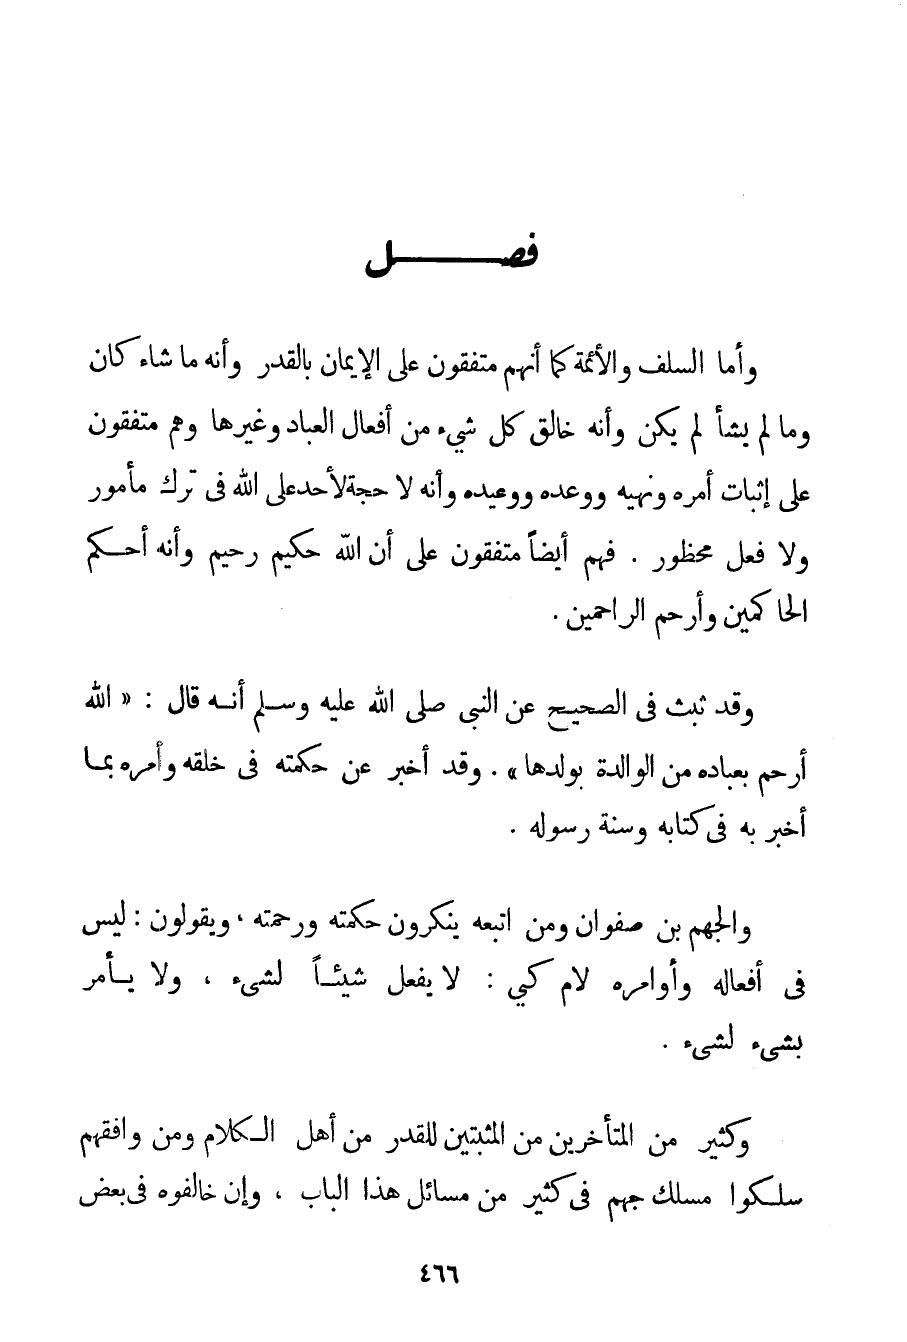 فصل
وأما السلف والأئمة كما أنهم متفقون على الإيمان بالقدر وأنه ما شاء كان
وما لم يشأ لم يكن وأنه خالق كل شيء من أفعال العباد وغيرها وهم متفقون
على إثبات أمره ونهيه ووعده ووعيده وأنه لا حجة لأحد على الله فى ترك مأمور
ولا فعل محظور . فهم أيضاً متفقون على أن الله حكيم رحيم وأنه أحكم
الحاكمين وأرحم الراحمين .
وقد ثبت فى الصحيح عن النبي صلى الله عليه وسلم أنه قال : « الله
أرحم بعباده من الوالدة بولدها » . وقد أخبر عن حكمته فى خلقه وأمره بما
أخبر به فى كتابه وسنة رسوله .
والجهم بن صفوان ومن اتبعه ينكرون حكمته ورحمته ، ويقولون : ليس
فى أفعاله وأوامره لام كي : لا يفعل شيئاً لشيء ، ولا يأمر
بشيء لشيء .
وكثير من المتأخرين من المثبتين للقدر من أهل الكلام ومن وافقهم
سلكوا مسلك جهم فى كثير من مسائل هذا الباب ، وإن خالفوه فى بعض
٤٦٦